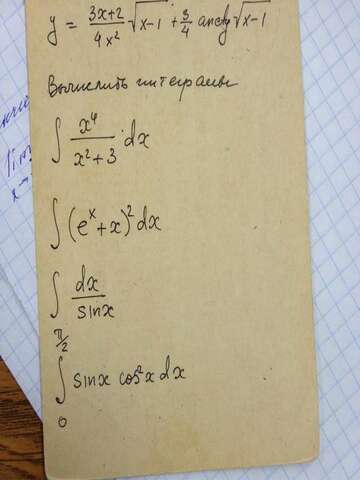 y = \frac{3x+2}{4x^2} \sqrt{x-1} + \frac{3}{4} arctg \sqrt{x-1}
Вычислить интегралы
\int \frac{x^4}{x^2+3} dx
\int (e^x + x)^2 dx
\int \frac{dx}{sin x}
\int_0^{π/2} sin x cos^2 x dx